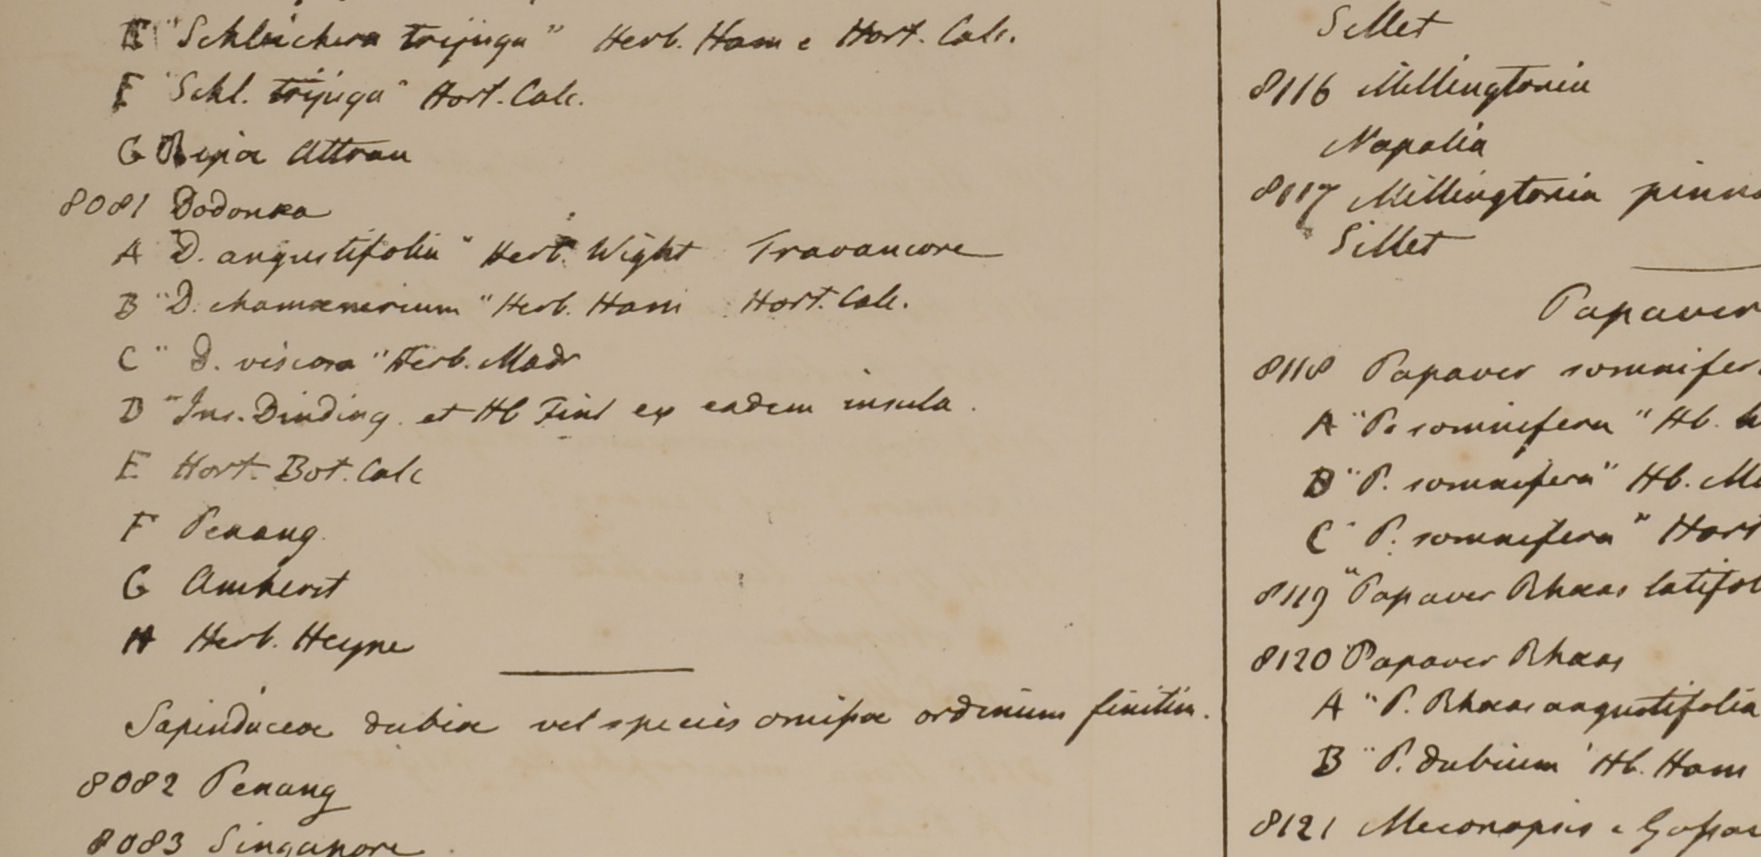 E "Schleichera trijuga" Herb. Ham e Hort. Calc.
F "Schl. trijuga" Hort. Calc.
G Ripa Attran
8081 Dodonæa
A "D. angustifolia" Herb. Wight Travancore
B "D. chamænerium" Herb. Ham Hort. Calc.
C "D. viscosa" Herb. Madr
D "Ins. Dinding. et Hb Finl ex eadem insula.
E Hort. Bot. Calc
F Penang.
G Amherst
H Herb. Heyne
Sapindaceæ dubiæ vel species omissæ ordinum finitim.
8082 Penang
8083 Singapore
Sillet
8116 Millingtonia
Napalia
8117 Millingtonia pinna
Sillet
Papaver
8118 Papaver somnifer
A "P. somnifera" Hb.
B "P. somnifera" Hb. Ma
C "P. somnifera" Hort
8119 "Papaver Rhæas latifol
8120 Papaver Rhæas
A "P. Rhæas angustifolia
B "P. dubium" Hb. Ham
8121 Meconopsis